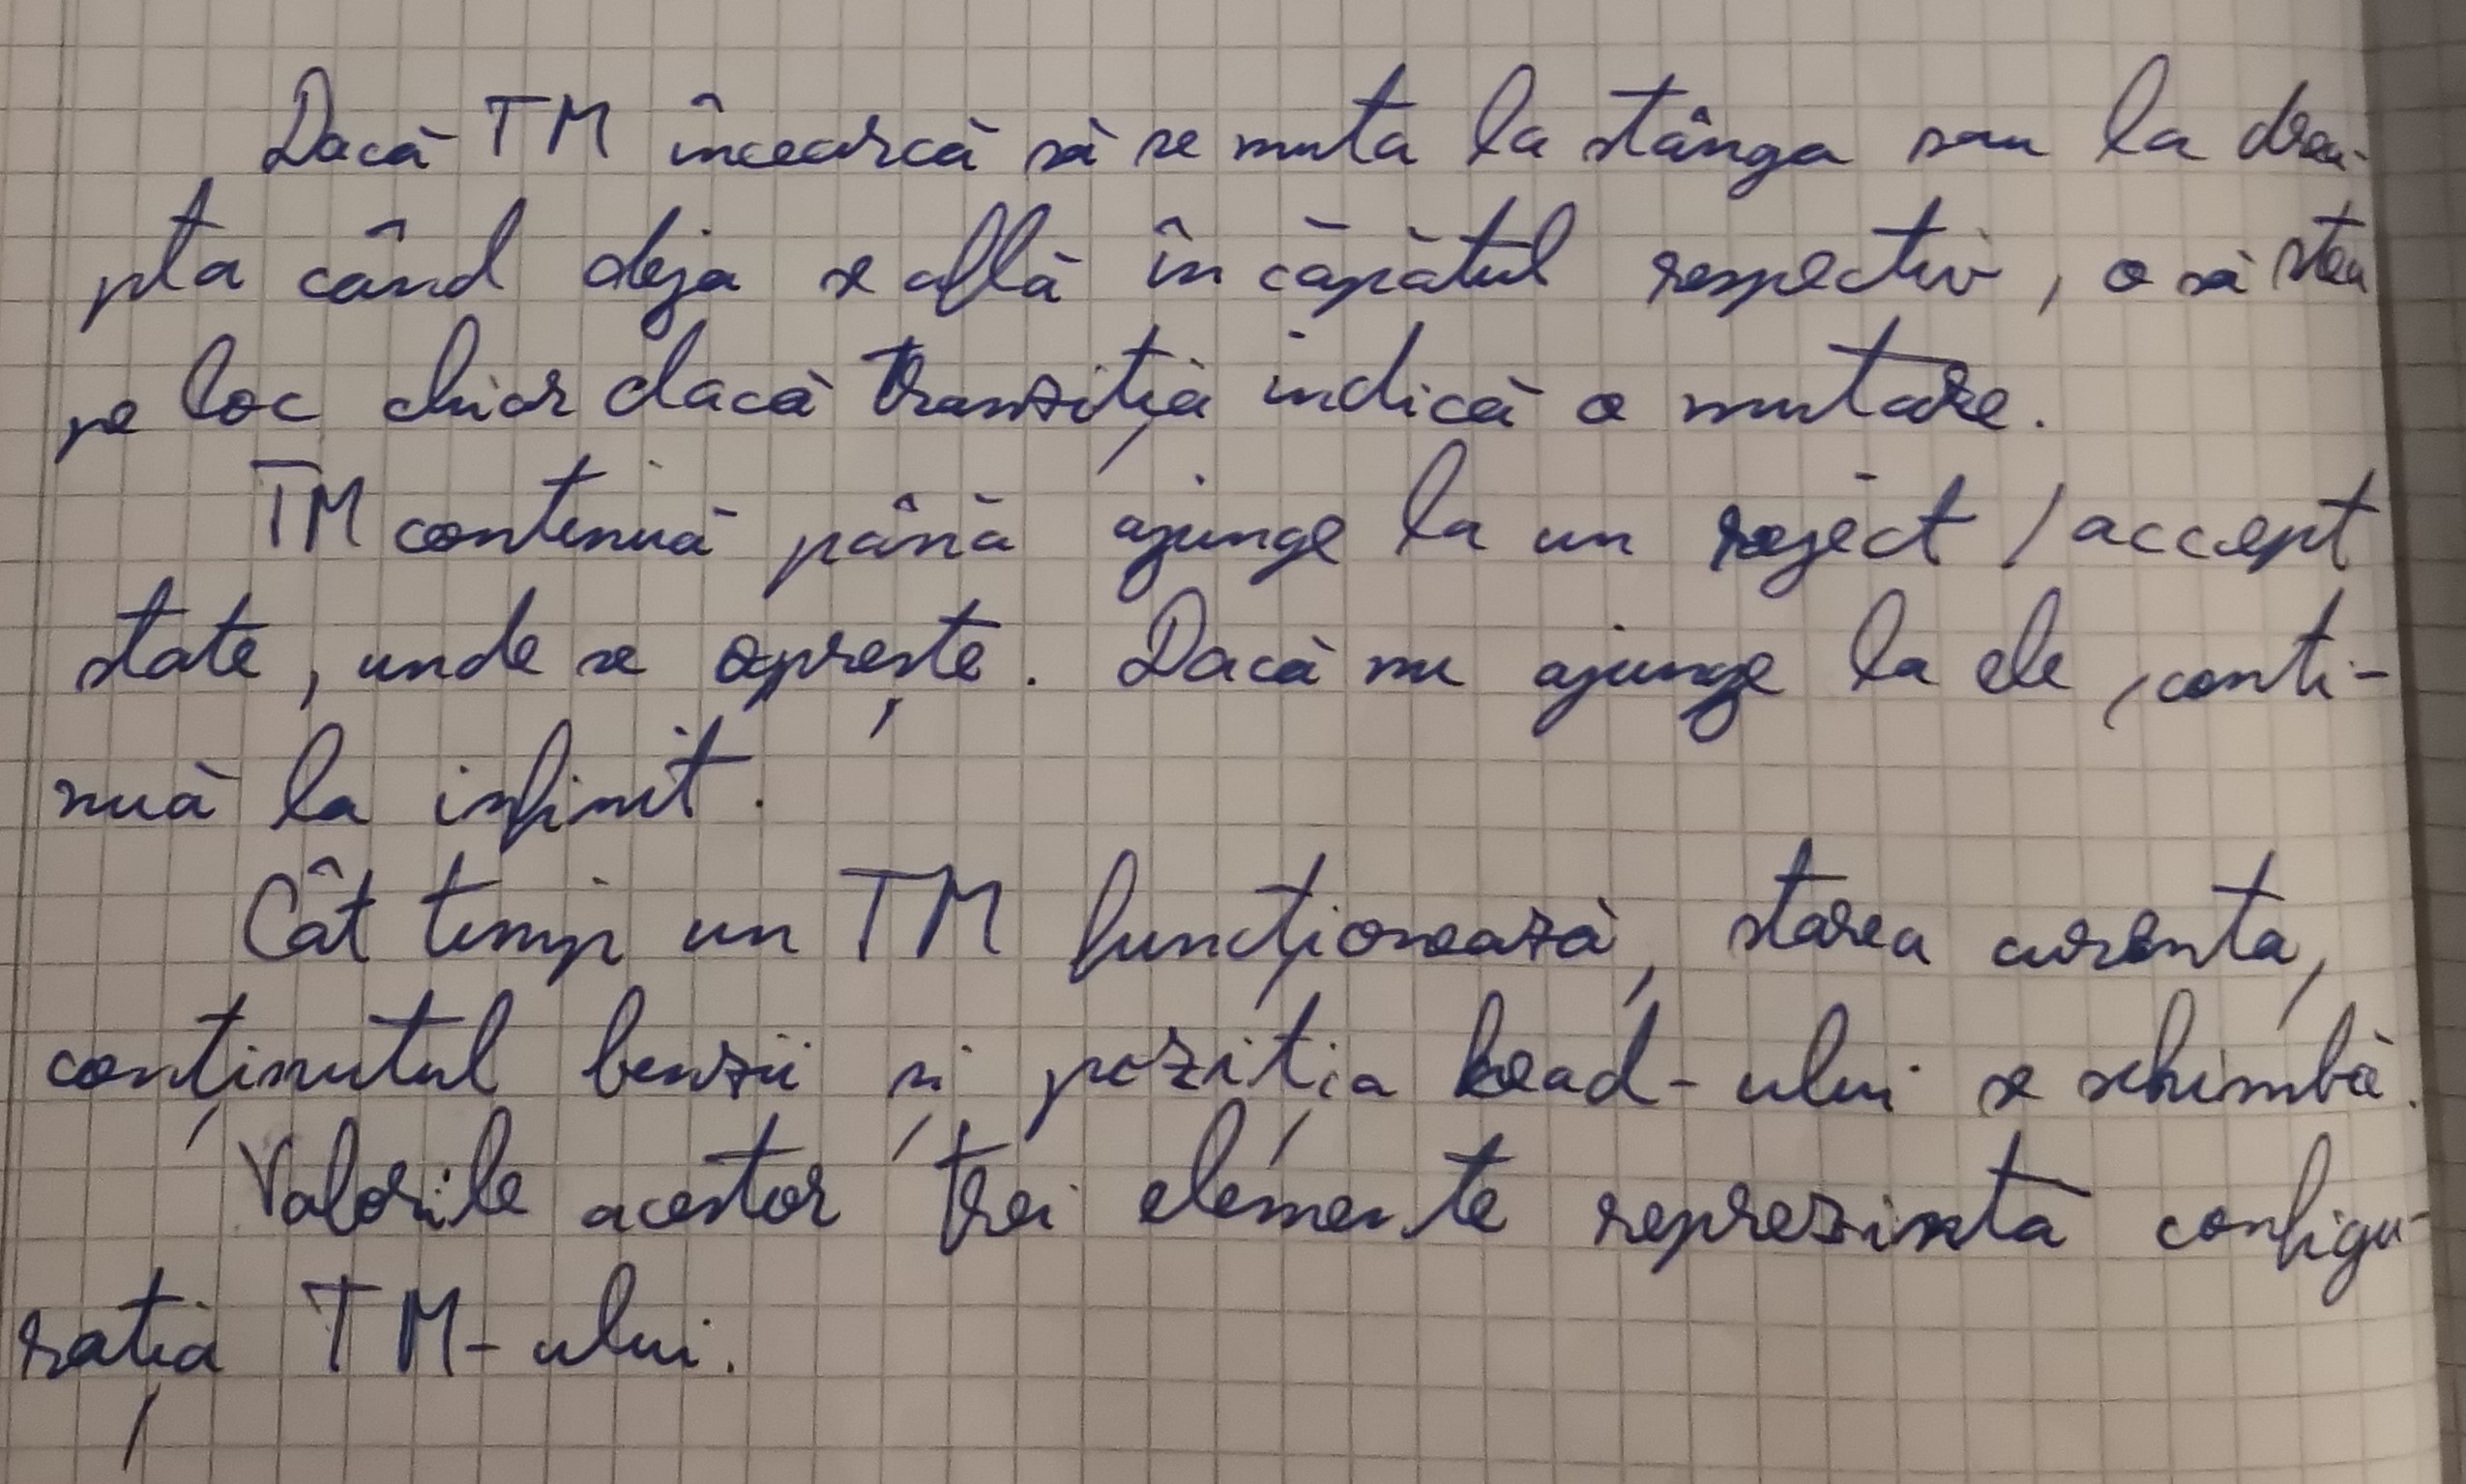 Dacă TM încearcă să se muta la stânga sau la drea-
pta când deja se află în căpătul respectiv, o să stea
pe loc chiar dacă tranziția indică o mutare.
TM continuă până ajunge la un reject / accept
state, unde se oprește. Dacă nu ajunge la ele, conti-
nuă la infinit.
Cât timp un TM funcționează, starea curenta,
conținutul benzii și poziția head-ului se schimbă.
Valorile acestor trei elemente reprezintă configu-
rația TM-ului.